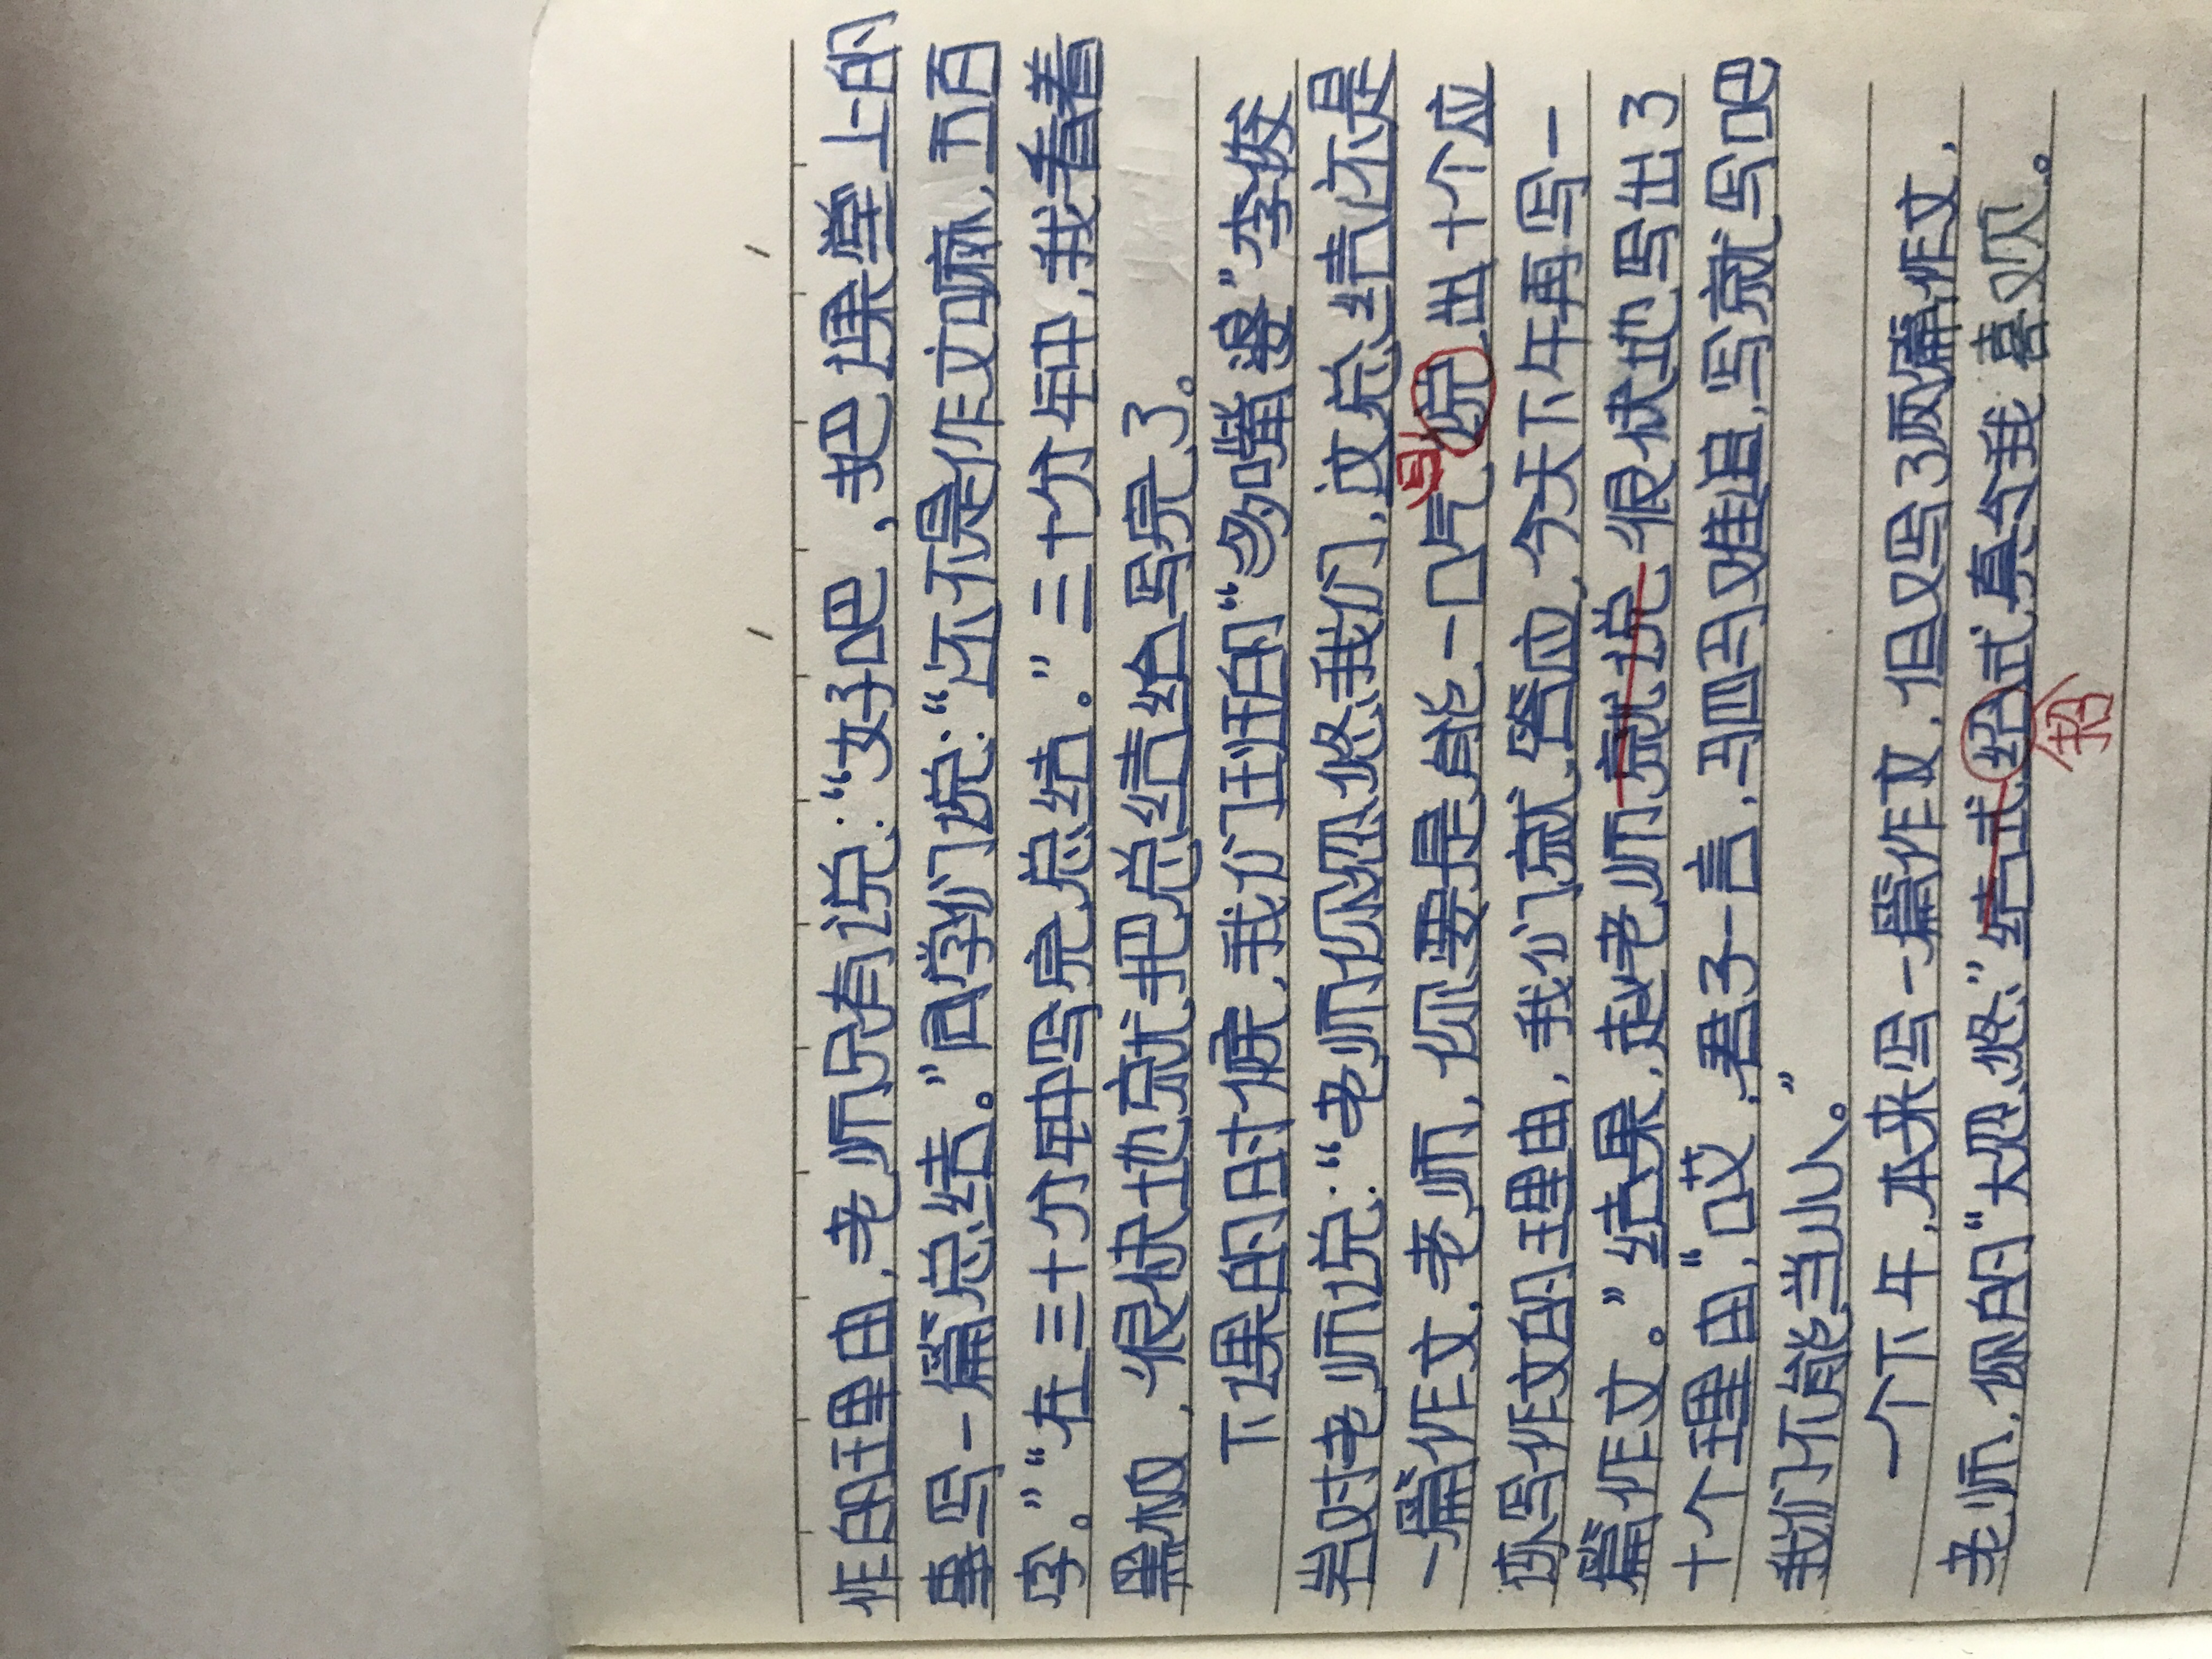 作的理由，老师只有说：“好吧，把课堂上的
事写一篇总结。”同学们说：“还不是作文嘛，五百
字。”“在三十分钟写完总结。”三十分钟，我看着
黑板，很快地就把总结给写完了。
下课的时候，我们班的“多嘴婆”李俊
岩对老师说：“老师你忽悠我们，这总结还不是
一篇作文，老师，你要是能一口气说出十个应
该写作文的理由，我们就答应，今天下午再写一
篇作文。”结果，赵老师就说很快地写出了
十个理由，“哎，君子一言，驷马难追，写就写吧
我们不能当小人。”
一个下午，本来写一篇作文，但又写了两篇作文，
老师，你的“大忽悠”结式给式，真令我喜欢。
写
给